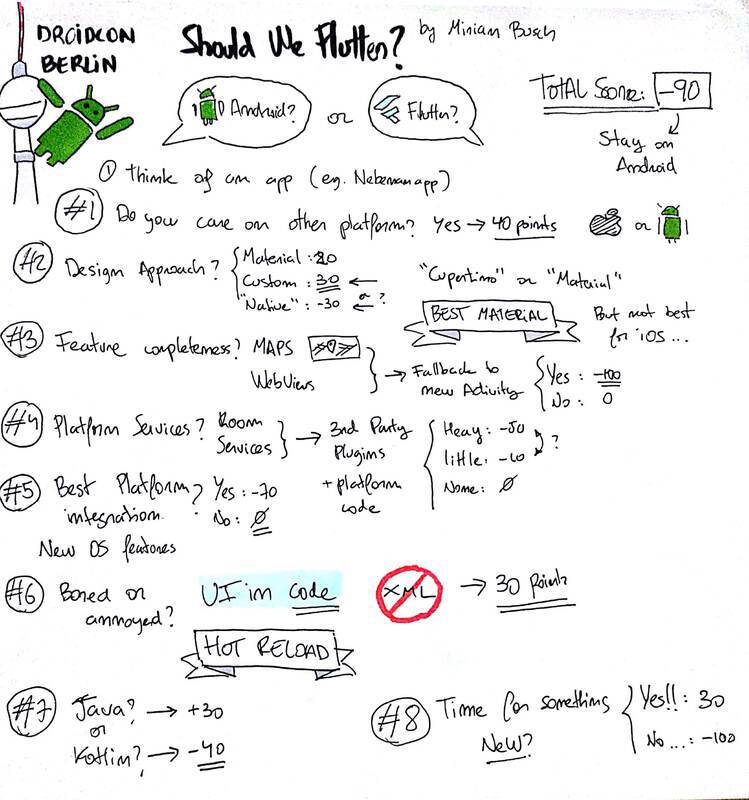 DROIDCON
BERLIN
Should We Flutter?
by Miriam Busch
Android?
or
Flutter?
TOTAL Score: -90
Stay on
Android
① Think of an app (eg. Nebenan app)
#1 Do you care on other platform? Yes → 40 points
or
#2 Design Approach?
Material : 20
Custom : 30 ←
"Native" : -30 ← ?
"Cupertino" or "Material"
BEST MATERIAL
But not best
for iOS ...
#3 Feature completeness? MAPS
WebViews
→ Fallback to
new Activity
Yes : -100
No : 0
#4 Platform Services? Room
Services
→ 3rd Party
Plugins
+ platform
code
Heavy : -50
little : ?
None : 0
#5 Best Platform
integration?
New OS features
Yes : -70
No : 0
#6 Bored or
annoyed?
UI in code
XML
→ 30 Points
HOT RELOAD
#7 Java? → +30
or
Kotlin? → -40
#8 Time for something
NEW?
Yes!! : 30
No ... : -100